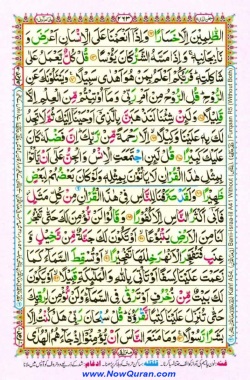 ۲۶۳
الظّٰلِمِيْنَ اِلَّا خَسَارًا ۝ وَاِذَآ اَنْعَمْنَا عَلَى الْاِنْسَانِ اَعْرَضَ وَ
نَاٰ بِجَانِبِهٖ ۚ وَاِذَا مَسَّهُ الشَّرُّ كَانَ يَـُٔوْسًا ۝ قُلْ كُلٌّ يَّعْمَلُ عَلٰى
شَاكِلَتِهٖ ؕ فَرَبُّكُمْ اَعْلَمُ بِمَنْ هُوَ اَهْدٰى سَبِيْلًا ۝ وَيَسْـَٔلُوْنَكَ عَنِ
الرُّوْحِ ؕ قُلِ الرُّوْحُ مِنْ اَمْرِ رَبِّيْ وَمَآ اُوْتِيْتُمْ مِّنَ الْعِلْمِ اِلَّا
قَلِيْلًا ۝ وَلَئِنْ شِئْنَا لَنَذْهَبَنَّ بِالَّذِيْٓ اَوْحَيْنَآ اِلَيْكَ ثُمَّ لَا تَجِدُ
لَكَ بِهٖ عَلَيْنَا وَكِيْلًا ۝ اِلَّا رَحْمَةً مِّنْ رَّبِّكَ ؕ اِنَّ فَضْلَهٗ كَانَ
عَلَيْكَ كَبِيْرًا ۝ قُلْ لَّئِنِ اجْتَمَعَتِ الْاِنْسُ وَالْجِنُّ عَلٰٓى اَنْ يَّاْتُوْا
بِمِثْلِ هٰذَا الْقُرْاٰنِ لَا يَاْتُوْنَ بِمِثْلِهٖ وَلَوْ كَانَ بَعْضُهُمْ لِبَعْضٍ
ظَهِيْرًا ۝ وَلَقَدْ صَرَّفْنَا لِلنَّاسِ فِيْ هٰذَا الْقُرْاٰنِ مِنْ كُلِّ مَثَلٍ
فَاَبٰٓى اَكْثَرُ النَّاسِ اِلَّا كُفُوْرًا ۝ وَقَالُوْا لَنْ نُّؤْمِنَ لَكَ حَتّٰى تَفْجُرَ
لَنَا مِنَ الْاَرْضِ يَنْۢبُوْعًا ۝ اَوْ تَكُوْنَ لَكَ جَنَّةٌ مِّنْ نَّخِيْلٍ وَّ
عِنَبٍ فَتُفَجِّرَ الْاَنْهٰرَ خِلٰلَهَا تَفْجِيْرًا ۝ اَوْ تُسْقِطَ السَّمَآءَ كَمَا
زَعَمْتَ عَلَيْنَا كِسَفًا اَوْ تَاْتِيَ بِاللّٰهِ وَالْمَلٰٓئِكَةِ قَبِيْلًا ۝ اَوْ يَكُوْنَ
لَكَ بَيْتٌ مِّنْ زُخْرُفٍ اَوْ تَرْقٰى فِي السَّمَآءِ ؕ وَلَنْ نُّؤْمِنَ لِرُقِيِّكَ
حَتّٰى تُنَزِّلَ عَلَيْنَا كِتٰبًا نَّقْرَؤُهٗ ؕ قُلْ سُبْحَانَ رَبِّيْ هَلْ كُنْتُ اِلَّا
بَشَرًا رَّسُوْلًا ۝ وَمَا مَنَعَ النَّاسَ اَنْ يُّؤْمِنُوْٓا اِذْ جَآءَهُمُ الْهُدٰٓى
www.NowQuran.com